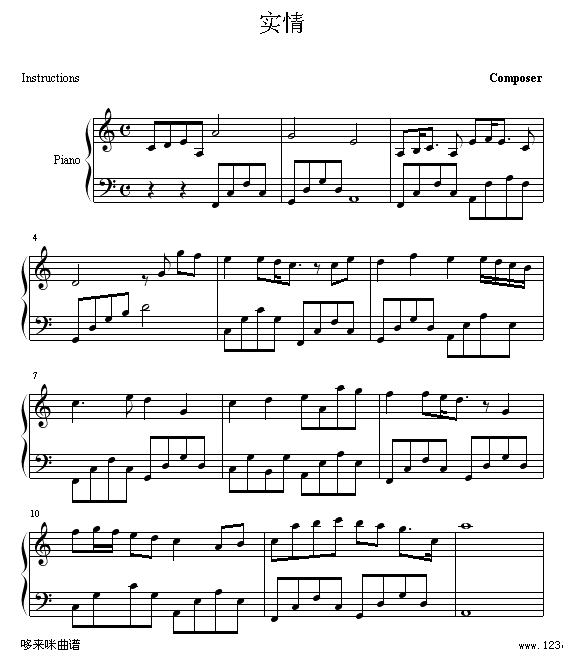 实情
Instructions
Composer
Piano
4
7
10
哆来咪曲谱
www.123